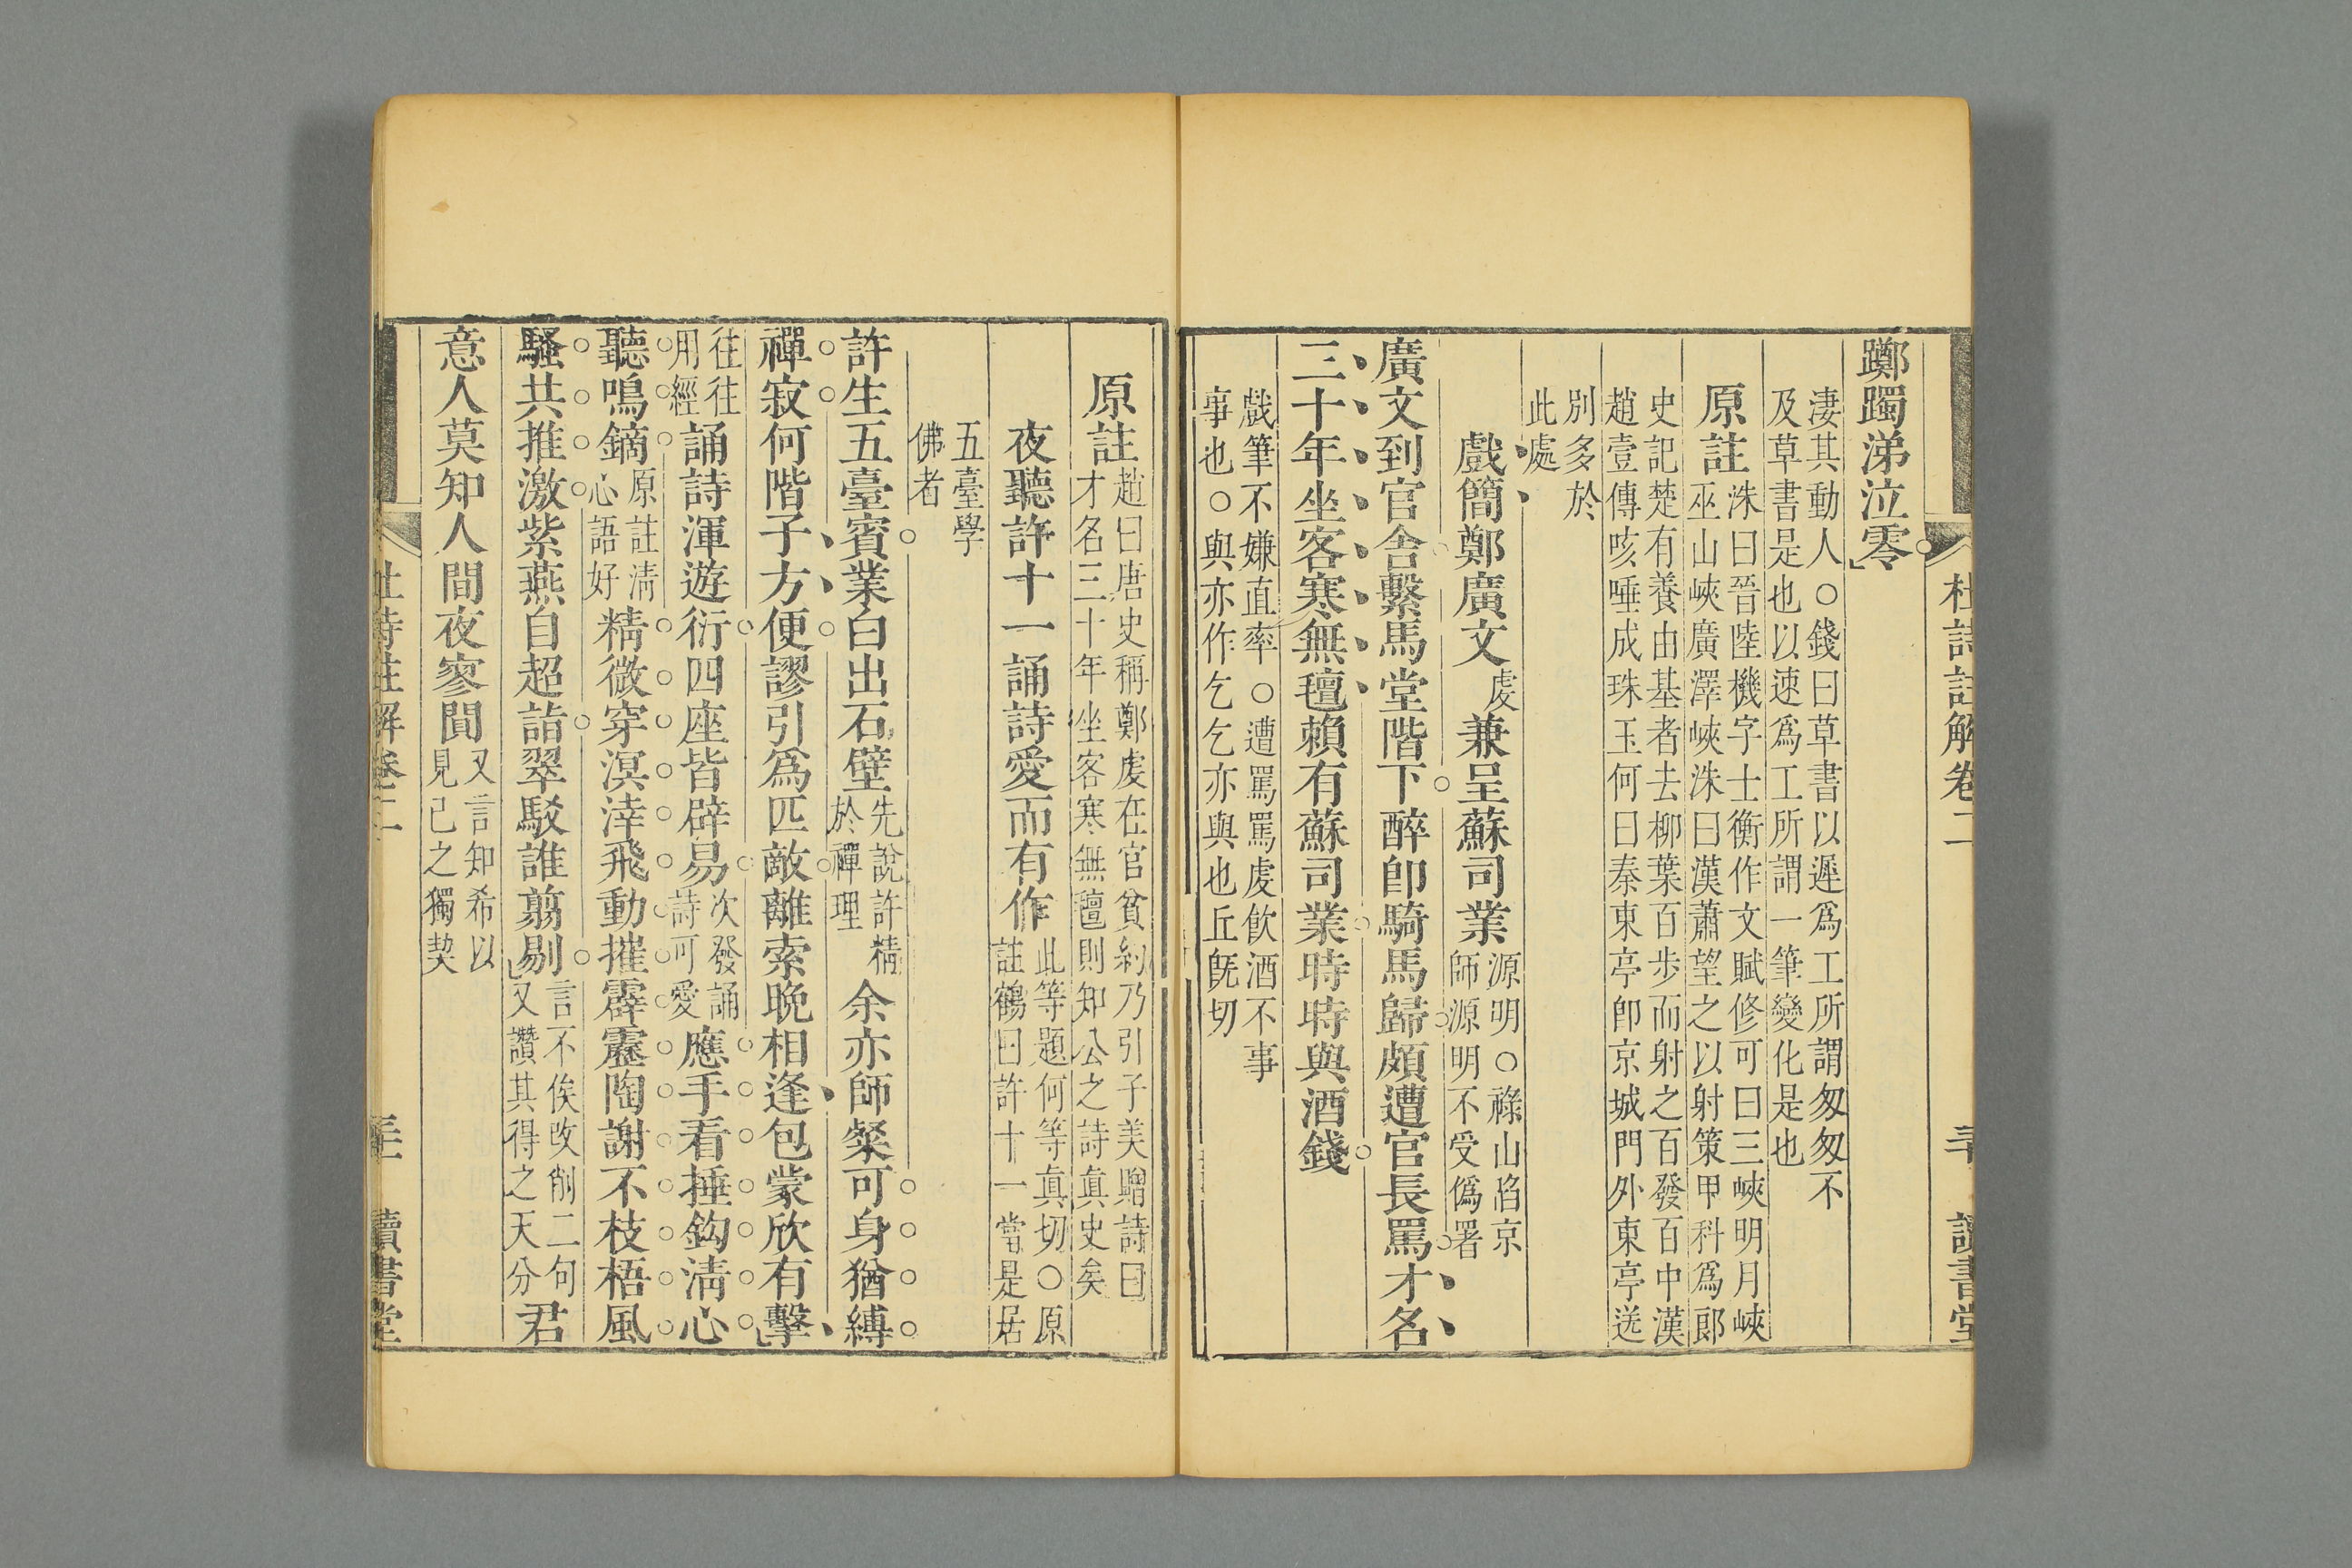 杜詩註解卷二 讀書堂
躑躅涕泣零
淒其動人○錢曰草書以遲爲工所謂匆匆不
及草書是也以速爲工所謂一筆變化是也
原註洙曰晉陸機字士衡作文賦修可曰三峽明月峽
巫山峽廣澤峽洙曰漢蕭望之以射策甲科爲郎
史記楚有養由基者去柳葉百步而射之百發百中漢
趙壹傳咳唾成珠玉何曰秦東亭卽京城門外東亭送
別多於
此處
戲簡鄭廣文虔兼呈蘇司業源明○祿山陷京
師源明不受僞署
廣文到官舍繫馬堂階下醉卽騎馬歸頗遭官長罵才名
三十年坐客寒無氊賴有蘇司業時時與酒錢
戲筆不嫌直率○遭罵罵虔飲酒不事
事也○與亦作乞乞亦與也丘旣切
原註趙曰唐史稱鄭虔在官貧約乃引子美贈詩曰
才名三十年坐客寒無氊則知公之詩眞史矣
夜聽許十一誦詩愛而有作此等題何等眞切○原
註鶴曰許十一當是居
五臺學
佛者
許生五臺賓業白出石壁先說許精
於禪理余亦師粲可身猶縛
禪寂何階子方便謬引爲匹敵離索晚相逢包蒙欣有擊
往往
用經誦詩渾遊衍四座皆辟易次發誦
詩可愛應手看捶鈎淸心
聽鳴鏑原註淸
心語好精微穿溟涬飛動摧霹靂陶謝不枝梧風
騷共推激紫燕自超詣翠駁誰剪剔言不俟改削二句
又讚其得之天分君
意人莫知人間夜寥闃又言知希以
見己之獨契
杜詩註解卷二 讀書堂